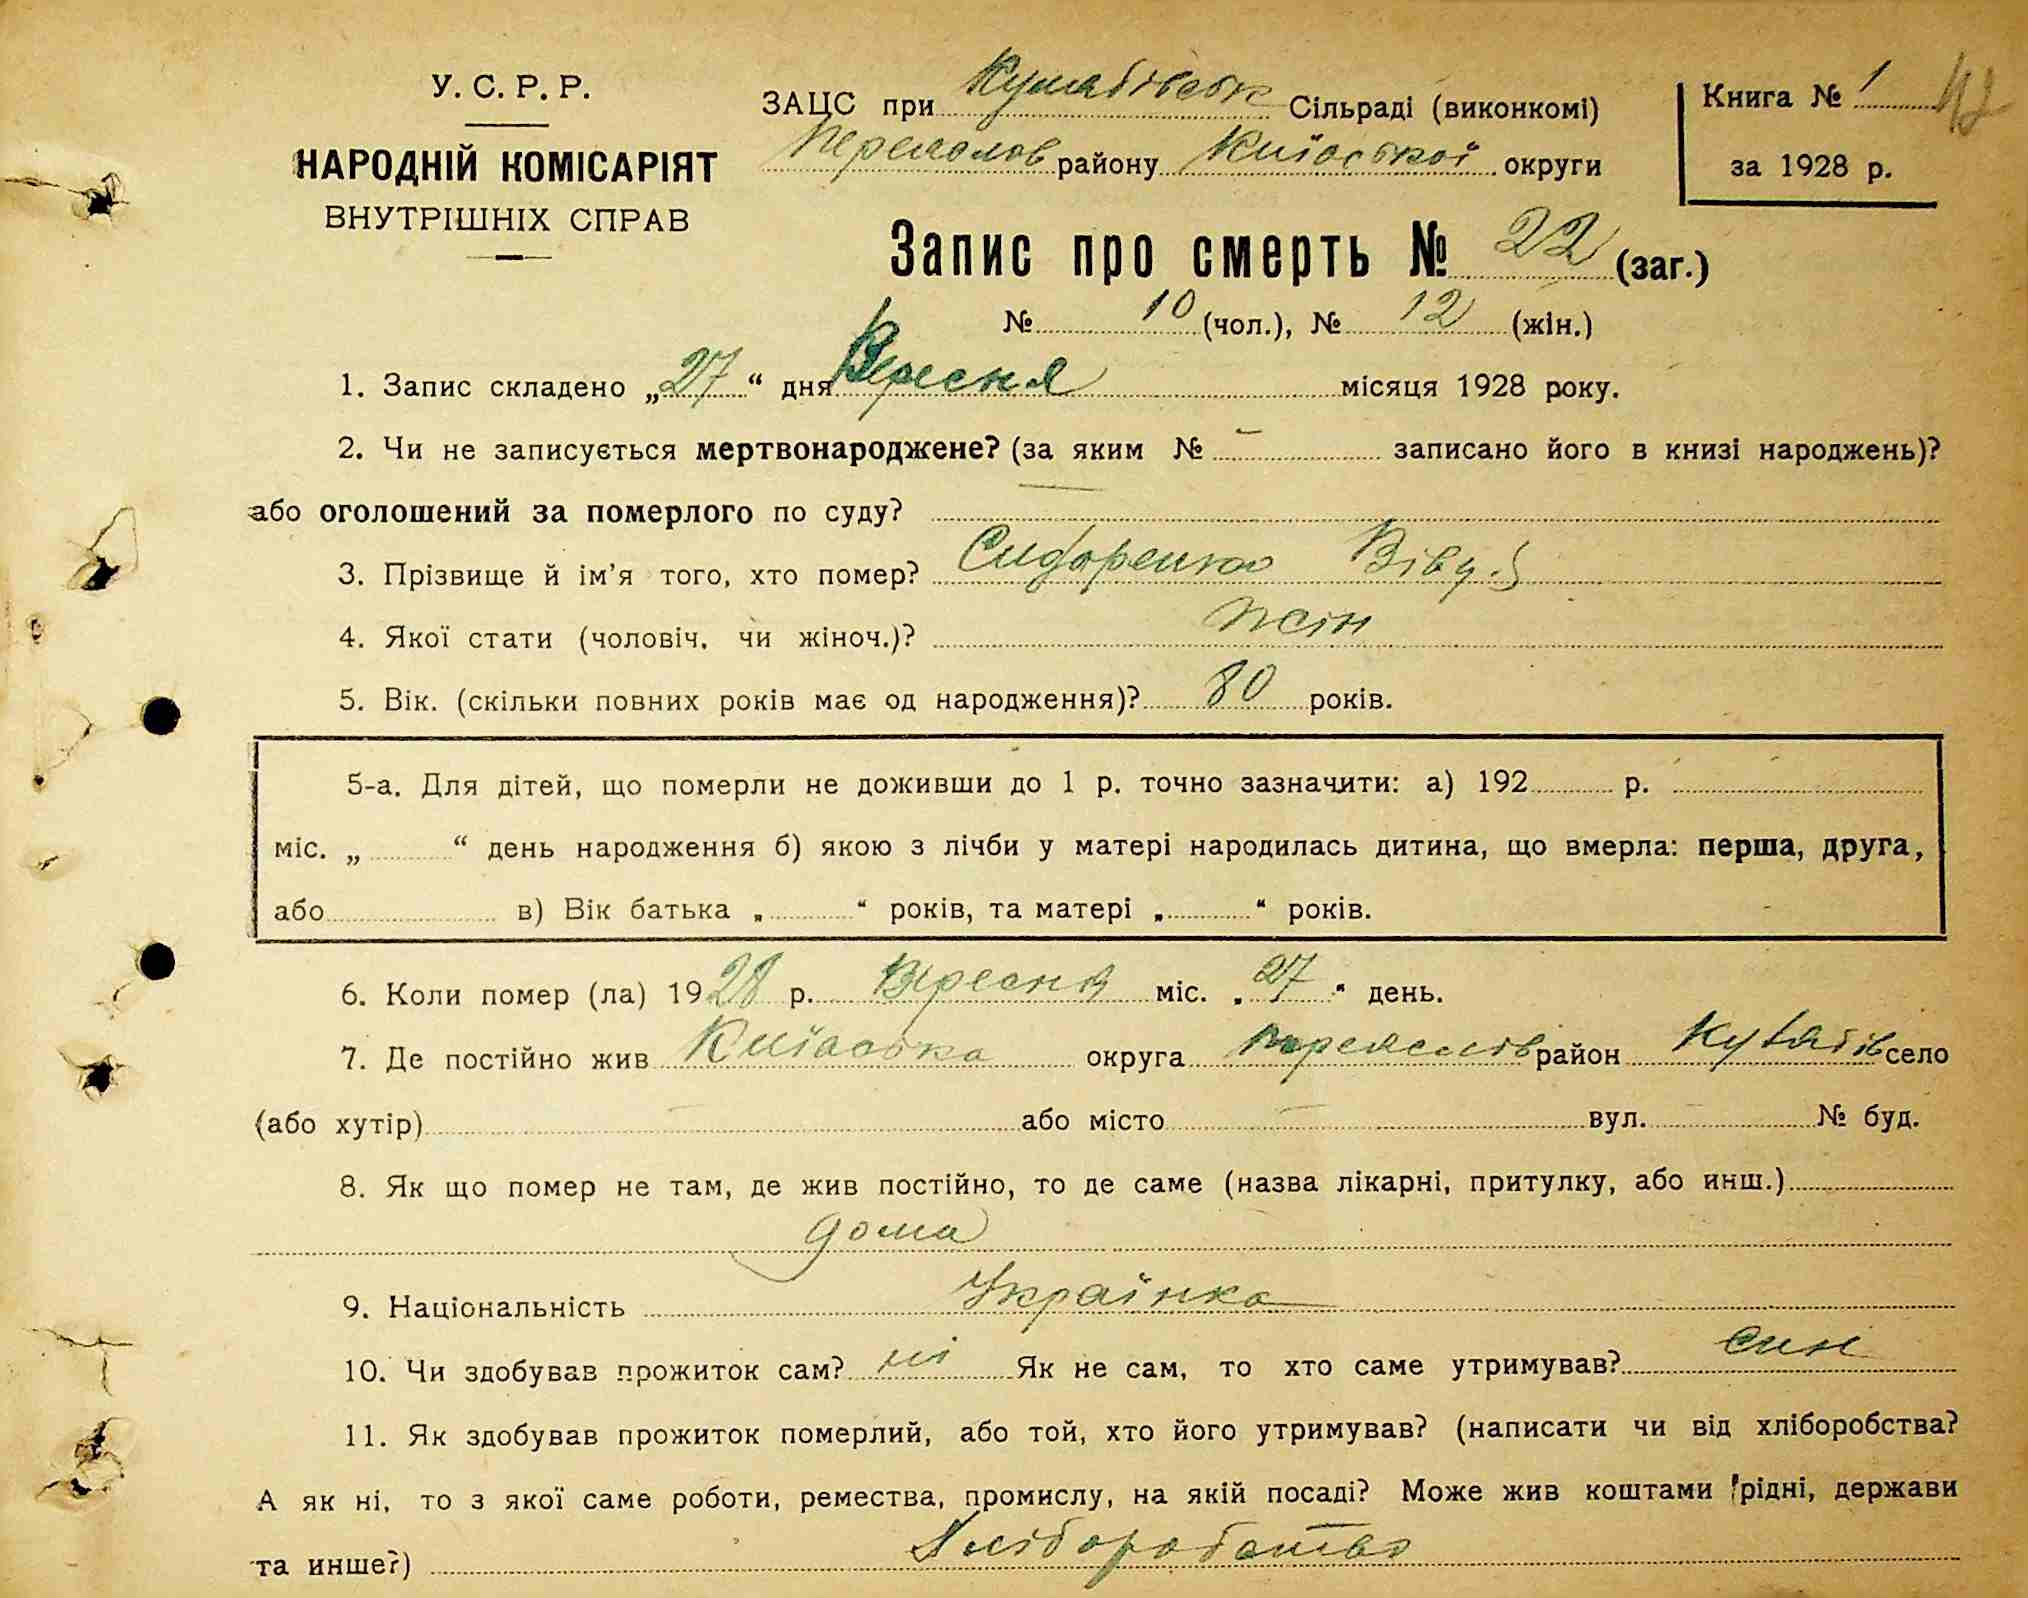 У. С. Р. Р.
НАРОДНІЙ КОМІСАРІЯТ
ВНУТРІШНІХ СПРАВ
ЗАЦС при Сільраді (виконкомі)
району Київської округи
Книга № 1 42
за 1928 р.
Запис про смерть № 22 (заг.)
№ 10 (чол.), № 12 (жін.)
1. Запис складено „27“ дня Вересня місяця 1928 року.
2. Чи не записується мертвонароджене? (за яким № – записано його в книзі народжень)?
або оголошений за померлого по суду? —
3. Прізвище й ім’я того, хто помер? Сидоренко
4. Якої стати (чоловіч. чи жіноч.)? жін
5. Вік. (скільки повних років має од народження)? 80 років.
5-а. Для дітей, що померли не доживши до 1 р. точно зазначити: а) 192 р.
міс. „ “ день народження б) якою з лічби у матері народилась дитина, що вмерла: перша, друга,
або в) Вік батька „ “ років, та матері „ “ років.
6. Коли помер (ла) 1928 р. Вересня міс. „27“ день.
7. Де постійно жив Київська округа район село
(або хутір) або місто вул. № буд.
8. Як що помер не там, де жив постійно, то де саме (назва лікарні, притулку, або инш.)
дома
9. Національність Українка
10. Чи здобував прожиток сам? ні Як не сам, то хто саме утримував? син
11. Як здобував прожиток померлий, або той, хто його утримував? (написати чи від хліборобства?
А як ні, то з якої саме роботи, ремества, промислу, на якій посаді? Може жив коштами рідні, держави
та инше?) Хліборобство